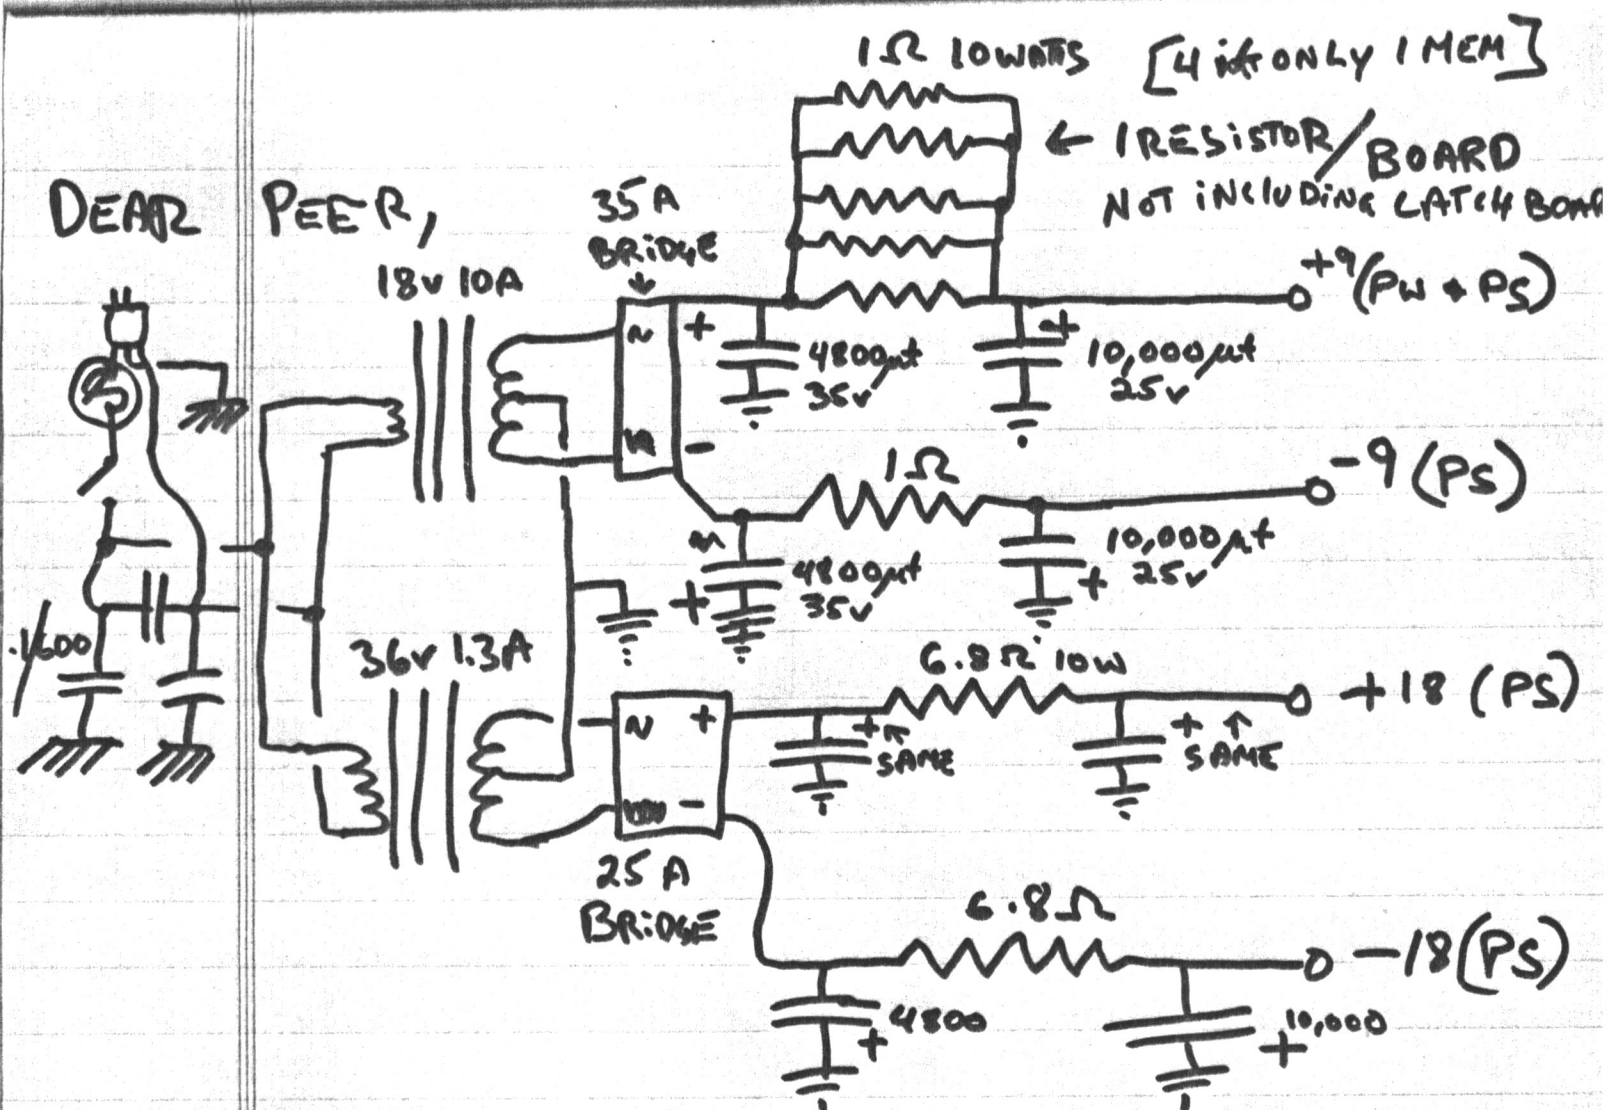 1Ω 10WATTS [4 if ONLY 1 MEM]
← 1 RESISTOR/BOARD
NOT INCLUDING LATCH BOAR
DEAR PEER,
35A
BRIDGE
18v 10A
+9 (PW + PS)
~ +
4800µf
35v
+
10,000µf
25v
-
1Ω
-9 (PS)
4800µf
35v
+
10,000µf
25v
+
.1600
36v 1.3A
6.8Ω 10W
+18 (PS)
N +
+
SAME
+
SAME
-
25A
BRIDGE
6.8Ω
-18 (PS)
4800
+
10,000
+